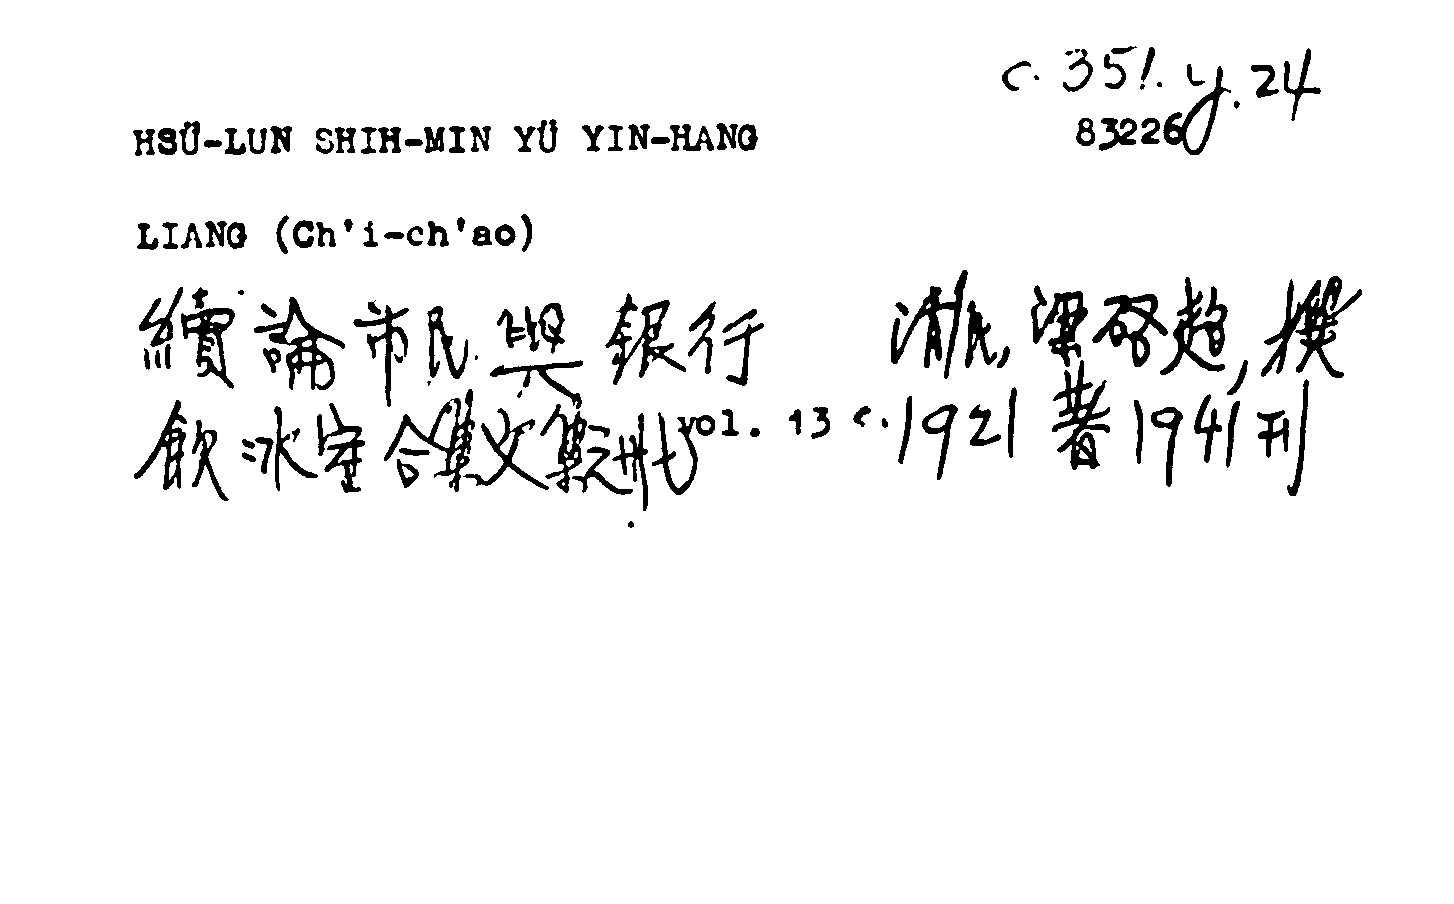 c. 351. y. 24
83226
HSÜ-LUN SHIH-MIN YÜ YIN-HANG
LIANG (Ch'i-ch'ao)
續論市民與銀行 清民, 梁啓超, 撰
飲冰室合集文集三卅七 vol. 13 c. 1921 著 1941 刊